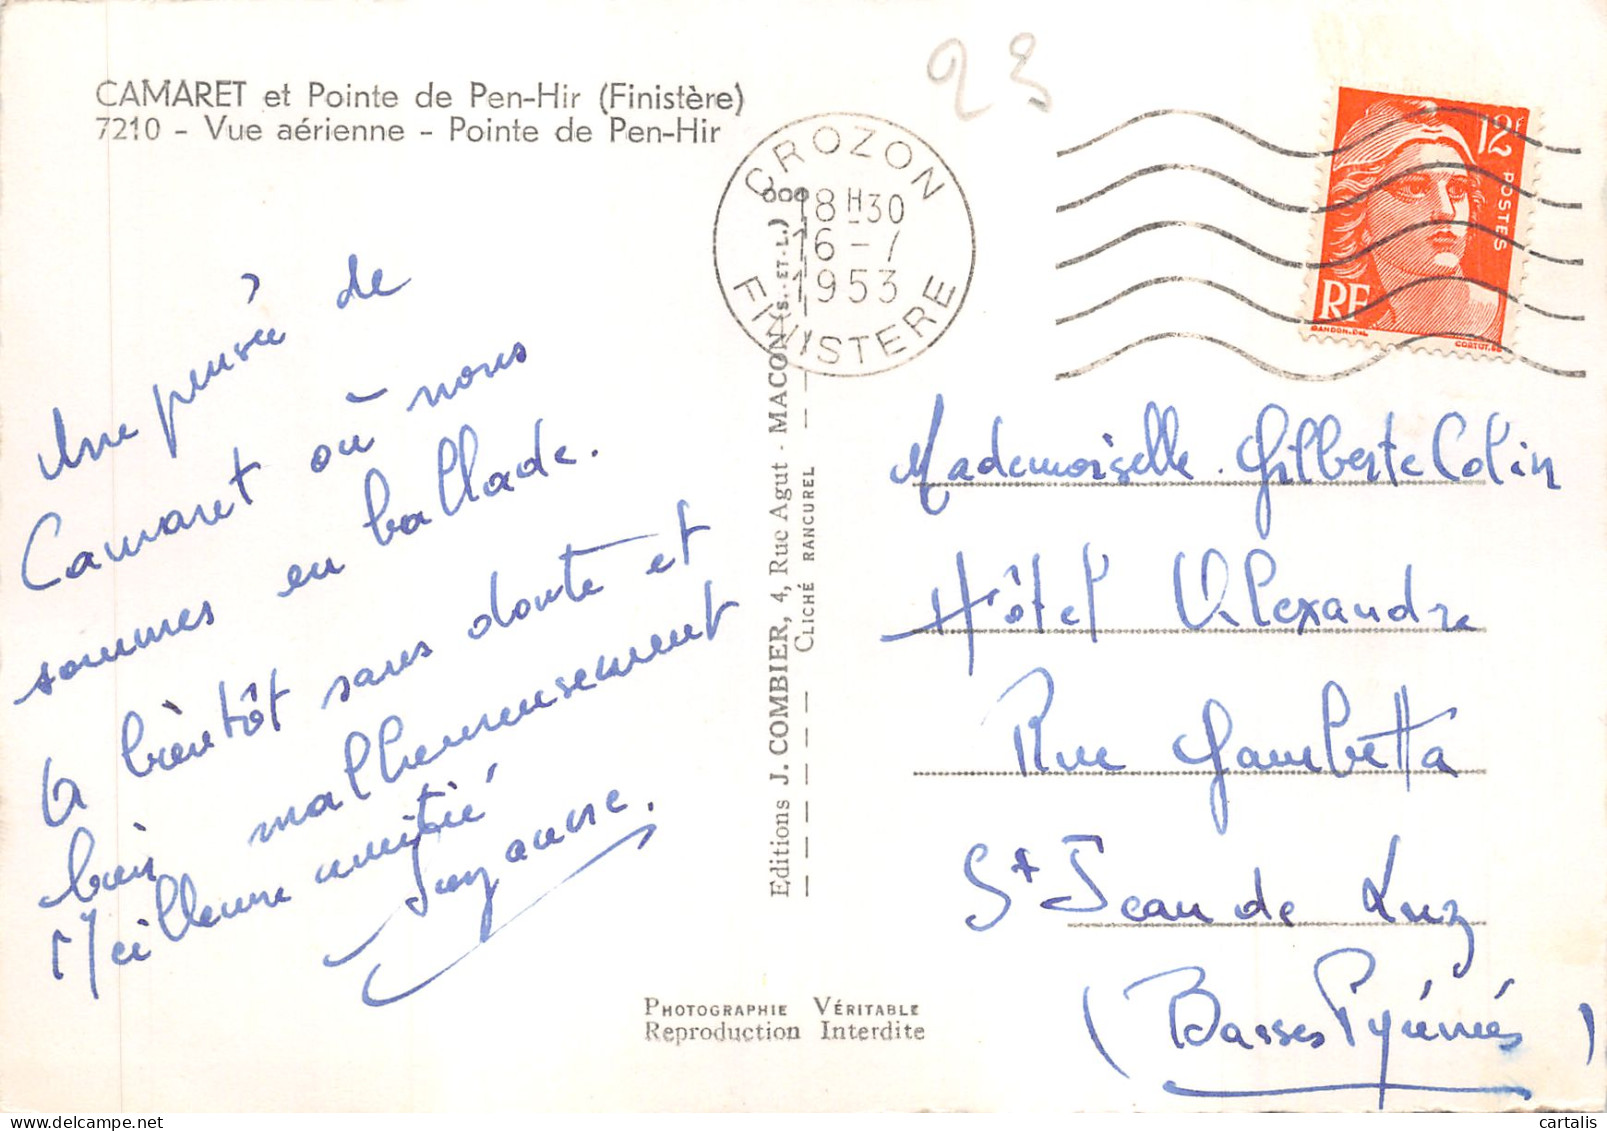 CAMARET et Pointe de Pen-Hir (Finistère)
7210 - Vue aérienne - Pointe de Pen-Hir
23
CROZON
18H30
16-7
1953
FINISTERE
12F
POSTES
RF
GANDON.DEL
CORTOT.SC
Une pensée de
Camaret où nous
sommes en ballade.
A bientôt sans doute et
bien malheureusement
Meilleure amitié
Editions J. COMBIER, 4, Rue Agut - MACON (S.-ET-L.)
CLICHÉ RANCUREL
Mademoiselle Gilberte Colin
Hôtel Alexandre
Rue Gambetta
St Jean de Luz
(Basses Pyénnés)
PHOTOGRAPHIE VÉRITABLE
Reproduction Interdite
cartalis